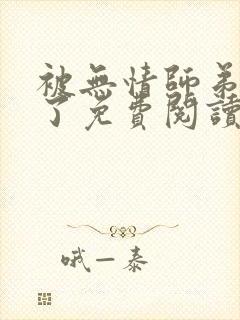 被無情師弟
了免費閱讀
哦一泰